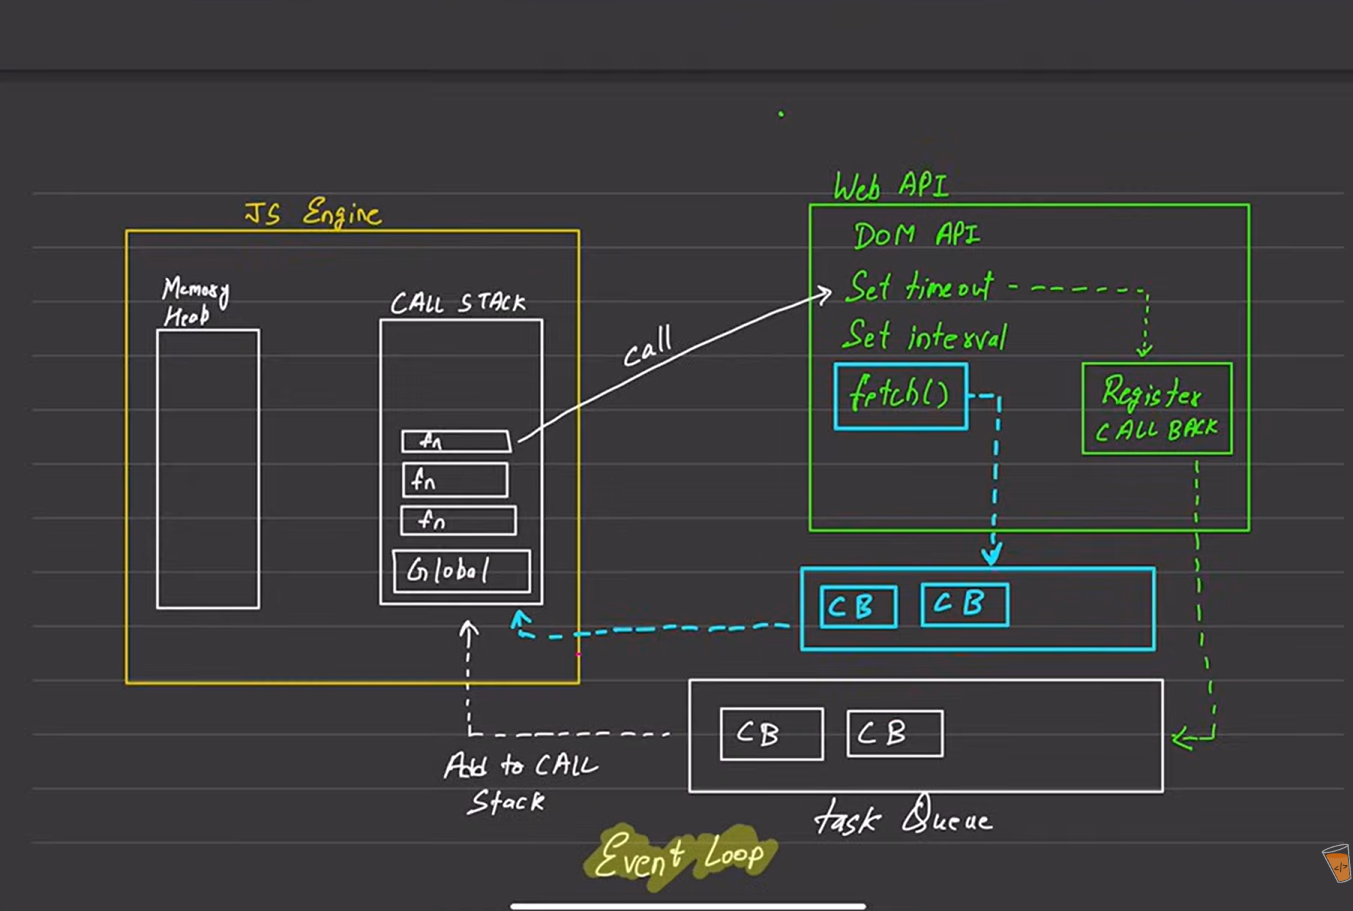 JS Engine
Memory
Heap
CALL STACK
fn
fn
fn
Global
call
Web API
DOM API
Set timeout
Set interval
fetch()
Register
CALL BACK
CB
CB
CB
CB
Task Queue
Add to CALL
Stack
Event Loop
</>